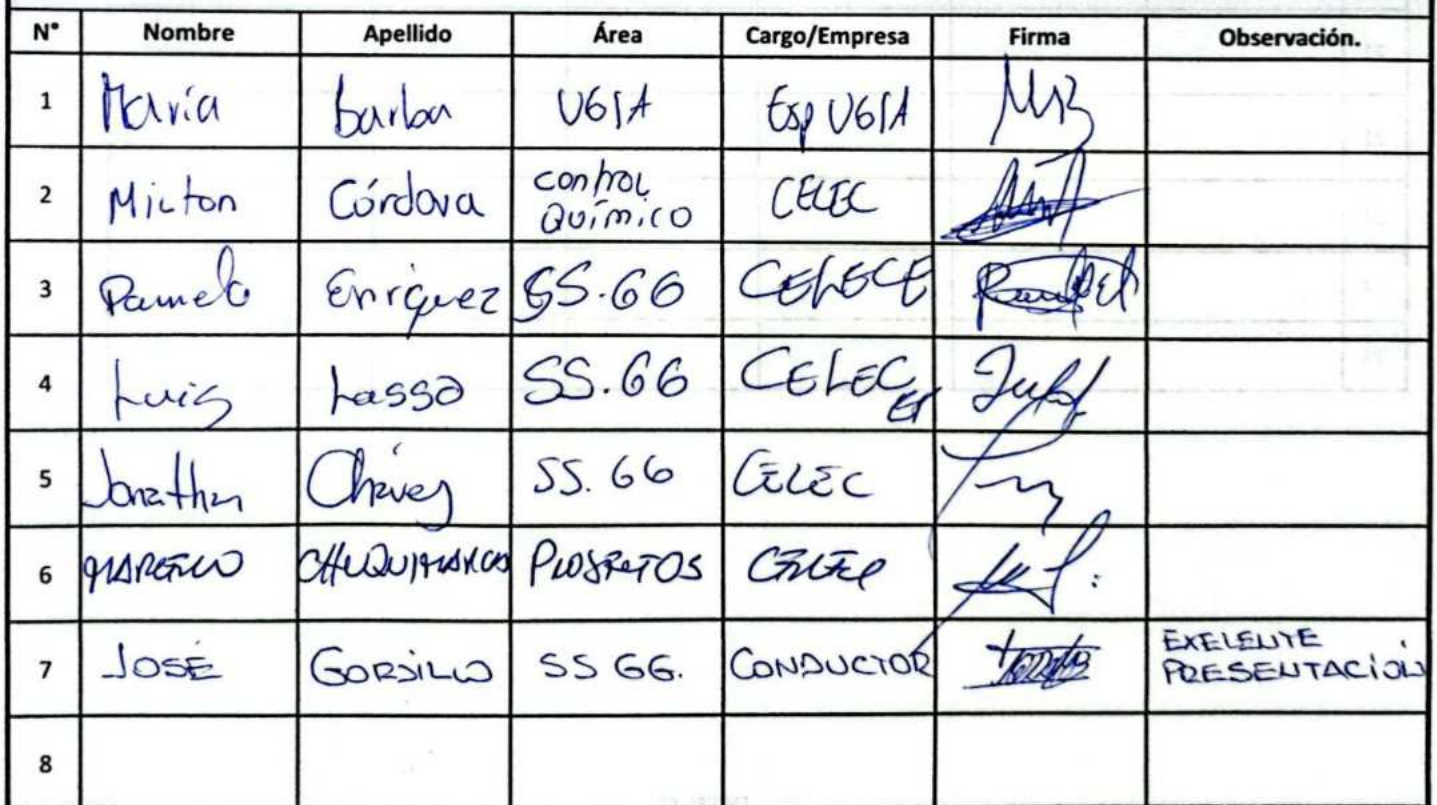 N° Nombre Apellido Área Cargo/Empresa Firma Observación.
1 María Barba UGSA Esp UGSA
2 Milton Córdova control Químico CELEC
3 Pamela Enríquez SS.GG CELEC E
4 Luis Lasso SS.GG CELEC EP
5 Jonathan Chávez SS.GG CELEC
6 MARCELO CHUQUIMARCA CELEC
7 JOSÉ GORDILLO SS GG. CONDUCTOR EXELENTE PRESENTACIÓN
8